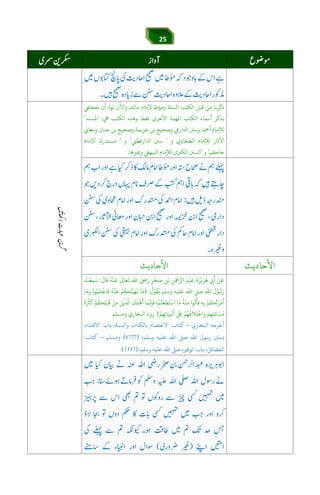 25
موضوع
آواز
سکرین سمری
ہے اس کے باوجود کہ مؤطا میں صحیح احادیث کی پانچ کتابوں میں
مذکور احادیث کے علاوہ احادیث سنن سے زیادہ صحیح ہیں۔
ذكرنا من قبل الكتب الستة وموطا الإمام مالك والآن نود أن نكتفي
بذكر أسماء الكتب المهمة الأخرى فقط وهذه الكتب هي: المسند
للإمام أحمد وسنن الدارمي وصحيح بن خزيمة وصحيح بن حبان ومعاني
الآثار للإمام الطحاوي و " سنن الدارقطني" و " مستدرك الإمام
حاكم" و "السنن الكبرى للإمام البيهقي وغيرها.
ہم نے پہلے صحاح ستہ اور مؤطا امام مالک کا ذکر کیا ہے اور اب ہم
چاہتے ہیں کہ باقی اہم کتب کے نام صرف نام یہاں درج کر دیں جو
مندرجہ ذیل ہیں: امام احمد کی مستدرک اور امام طحاوی کی سنن
دارمی، صحیح ابن خزیمہ اور صحیح ابن حبان اور معانی الآثار، سنن
دار قطنی اور امام حاکم کی مستدرک اور امام بیہقی کی سنن الکبری
وغیرہ۔
الأحاديث
الأحاديث
عَنْ أَبِي هُرَيْرَةَ عَبْدِ الرَّحْمَنِ بْنِ صَخْرٍ رَضِيَ اللهُ تعالى عَنْهُ قَالَ: سَمِعْتُ
رَسُولَ اللهِ صلى الله عليه وسلم يَقُولُ: (مَا نَهَيْتُكُمْ عَنْهُ فَاجْتَنِبُوهُ وَمَا
أَمَرْتُكُمْ بِهِ فَأْتُوا مِنْهُ مَا اسْتَطَعْتُمْ فَإِنَّمَا أَهْلَكَ الَّذِينَ مِنْ قَبْلِكُمْ كَثْرَةُ
مَسَائِلِهِمْ وَاخْتِلَافُهُمْ عَلَى أَنْبِيَائِهِمْ). رواه البخاري ومسلم
أخرجه البخاري – كتاب: الاعتصام بالكتاب والسنة، باب: الاقتداء
بسنن رسول الله صلى الله عليه وسلم، (6777) ومسلم – كتاب:
الفضائل، باب: توقيره صلى الله عليه وسلم، (1337).
ابوہریرہ عبد الرحمن بن صخر رضی اللہ عنہ نے بیان کیا میں
نے رسول اللہ صلی اللہ علیہ وسلم کو فرماتے ہوئے سنا: جب
میں تمہیں کسی چیز سے روکوں تو تم بھی اس سے پرہیز
کرو اور جب میں تمہیں کسی بات کا حکم دوں تو بجا لاؤ
جس حد تک تم میں طاقت ہو۔ کیونکہ تم سے پہلے کی
امتیں اپنے (غیر ضروری) سوال اور انبیاء کے سامنے